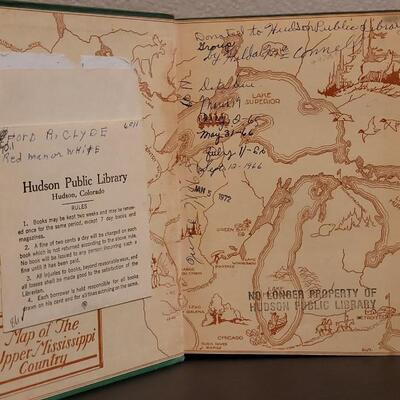 FORD R. CLYDE 6011
Red man or White
Hudson Public Library
Hudson, Colorado
RULES
1. Books may be kept two weeks and may be renewed once for the same period, except 7 day books and magazines.
2. A fine of two cents a day will be charged on each book which is not returned according to the above rule. No book will be issued to any person incurring such a fine until it has been paid.
3. All injuries to books, beyond reasonable wear, and all losses shall be made good to the satisfaction of the Librarian.
4. Each borrower is held responsible for all books drawn on his card and for all fines accruing on the same.
Map of The
Upper Mississippi
Country
Donated to Hudson Public Library
by Hilda O'Connell
Date Due
May 31-66
July 11-66
Sept 12-1966
5 1972
LAKE
SUPERIOR
LAKE
NO LONGER PROPERTY OF
HUDSON PUBLIC LIBRARY
GALENA
CHICAGO